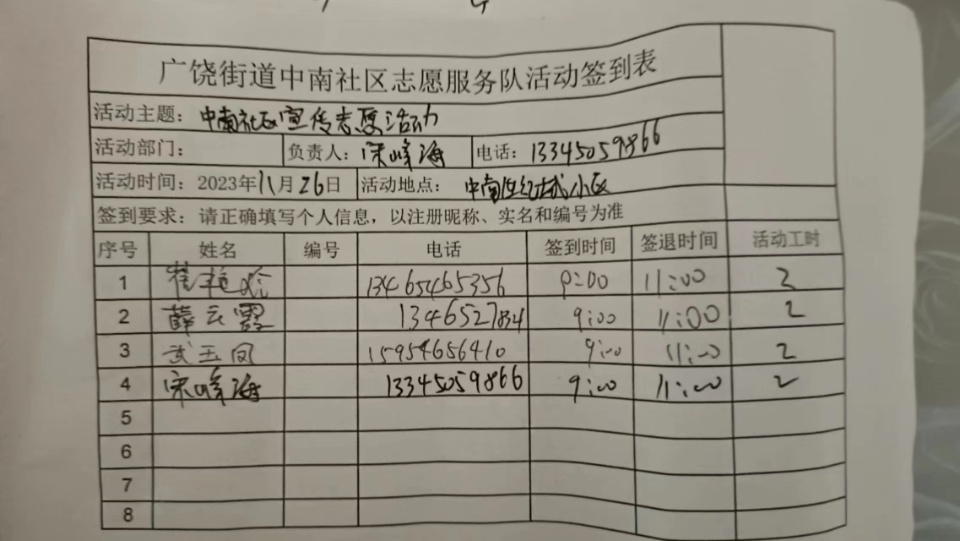 广饶街道中南社区志愿服务队活动签到表
活动主题：中南社区宣传志愿活动
活动部门： 负责人：宋峰海 电话：13345059866
活动时间：2023年11月26日 活动地点：中南世纪城小区
签到要求：请正确填写个人信息，以注册昵称、实名和编号为准
序号 姓名 编号 电话 签到时间 签退时间 活动工时
1 13465465356 9:00 11:00 2
2 薛云霞 9:00 11:00 2
3 武玉凤 15954656410 9:00 11:00 2
4 宋峰海 13345059866 9:00 11:00 2
5
6
7
8